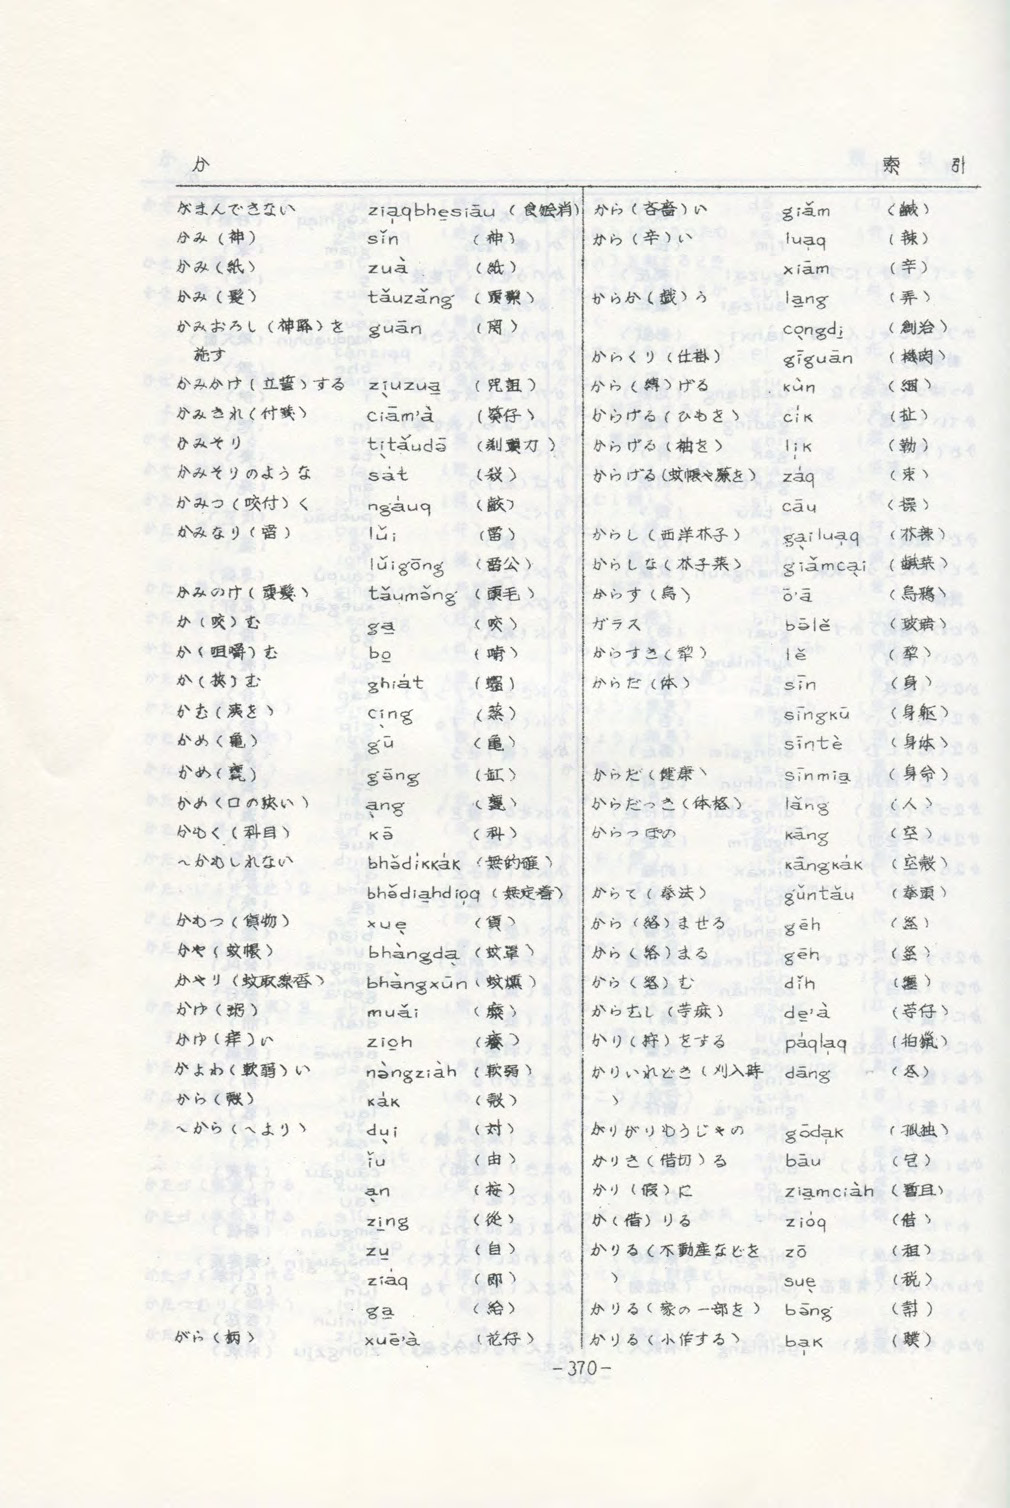 か
索 引
がまんできない ziaqbhesiāu (食𣍐消)
かみ(神) sǐn (神)
かみ(紙) zuà (紙)
かみ(髪) tǎuzǎng (頭鬃)
かみおろし(神降)を guān (関)
施す
かみかけ(立誓)する ziuzua (咒詛)
かみきれ(付牋) ciām'à (簽仔)
かみそり titǎudō (剃頭刀)
かみそりのような sát (殺)
かみつ(咬付)く ngáuq
かみなり(雷) lǔi (雷)
lǔigōng (雷公)
かみのけ(頭髪) tǎumǒng (頭毛)
か(咬)む ga (咬)
か(咀嚼)む bo (哺)
か(挟)む ghiát
かむ(洟を) cing
かめ(亀) gū (亀)
かめ(甕) gāng (缸)
かめ(口の狭い) ang (甕)
かもく(科目) kō (科)
〜かもしれない bhǒdikkák (無的確)
bhǒdiahdioq (無定着)
かもつ(貨物) xue (貨)
かや(蚊帳) bhàngda (蚊罩)
かやり(蚊取線香) bhàngxūn (蚊燻)
かゆ(粥) muǎi (糜)
かゆ(痒)い zioh (癢)
かよわ(軟弱)い nàngziàh (軟弱)
から(殻) kák (殻)
〜から(〜より) dui (対)
ǐu (由)
an (按)
zing (從)
zu (自)
ziáq (即)
ga (給)
がら(柄) xuē'à (花仔)
から(吝嗇)い giǎm (鹹)
から(辛)い luaq (辣)
xiām (辛)
からか(戯)う lang (弄)
congdi (創治)
からくり(仕掛) gīguān (機関)
から(縛)げる kùn (綑)
からげる(ひもを) cík (扯)
からげる(袖を) lik (勒)
からげる(蚊帳や簾を) záq (束)
cāu (操)
からし(西洋芥子) gailuaq (芥辣)
からしな(芥子菜) giǎmcai (鹹菜)
からす(烏) ō'ā (烏鴉)
ガラス bōlě (玻璃)
からすき(犂) lě (犂)
からだ(体) sīn (身)
sīngkū (身躯)
sīntè (身体)
からだ(健康) sīnmia (身命)
からだつき(体格) lǎng (人)
からっぽの kāng (空)
kāngkák (空殻)
からて(拳法) gǔntǎu (拳頭)
から(絡)ませる gēh
から(絡)まる gēh
から(絡)む dǐh (纏)
からむし(苧麻) de'à (苧仔)
かり(狩)をする páqlaq (拍獵)
かりいれどき(刈入時 dāng (冬)
)
がりがりもうじゃの gōdak (孤独)
かりき(借切)る bāu (包)
かり(仮)に ziamciàh (暫且)
か(借)りる zióq (借)
かりる(不動産などを zō (租)
) sue (税)
かりる(家の一部を) bāng
かりる(小作する) bak (贌)
-370-